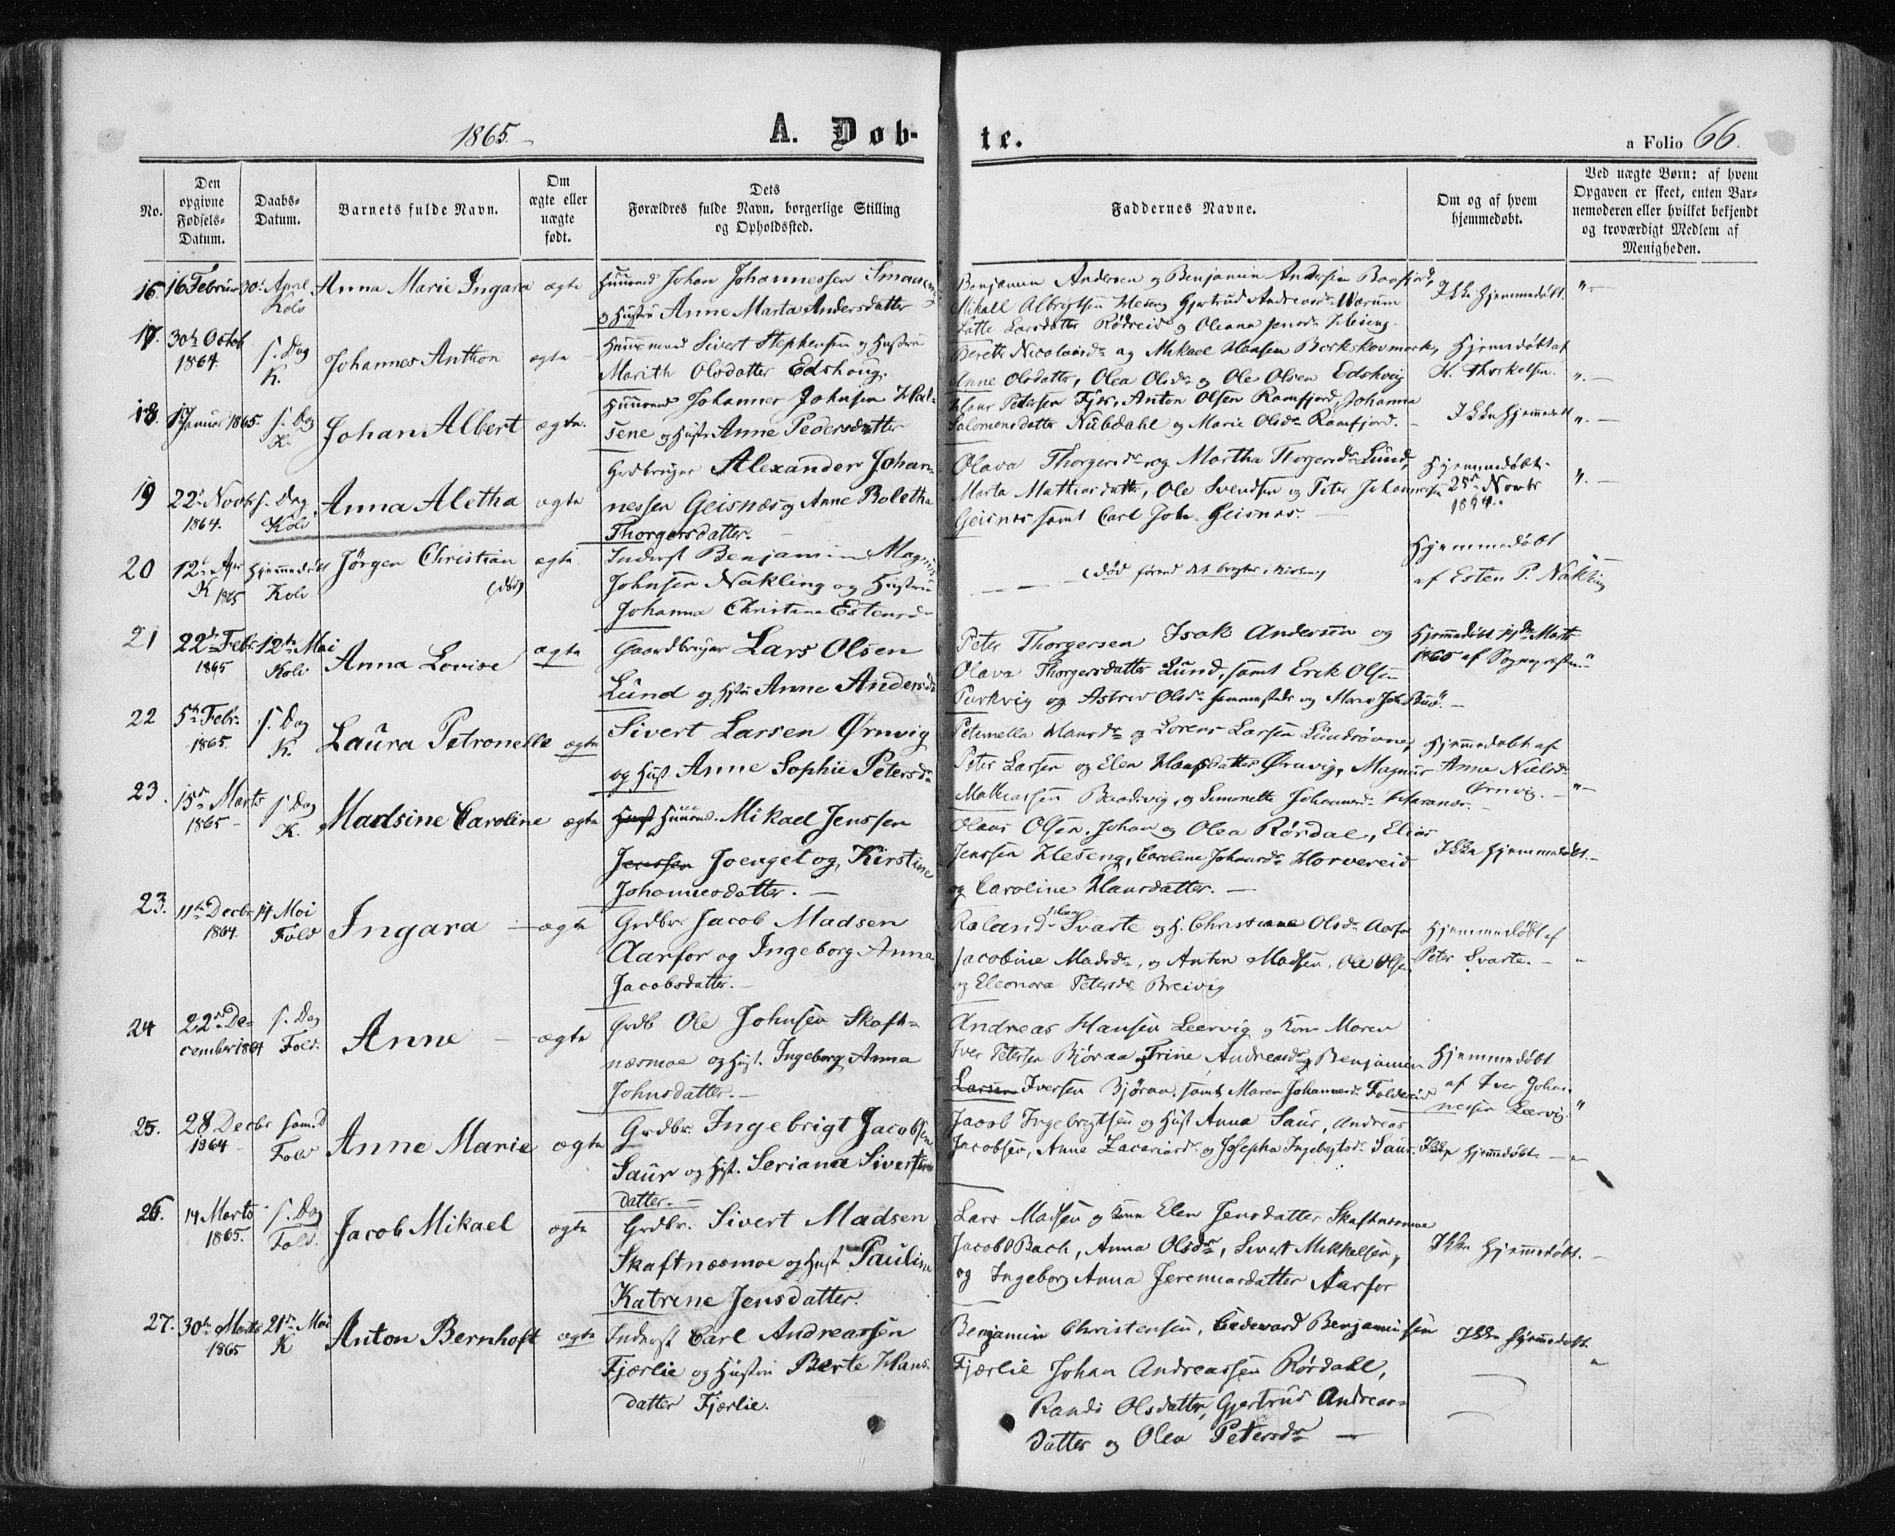 1865. A. Døb-
te. a Folio 66.
No.
Den opgivne Fødsels-Datum.
Daabs-Datum.
Barnets fulde Navn.
Om ægte eller uægte født.
Dets Forældres fulde Navn, borgerlige Stilling og Opholdssted.
Faddernes Navne.
Om og af hvem hjemmedøbt.
Ved uægte Børn: af hvem Opgaven er skeet, enten Barnemoderen eller hvilket bekjendt og troværdigt Medlem af Menigheden.
16 16 Februar 30 April Kolv Anna Marie Ingara ægte
Huusmd Johan Johannessen
og Hustru Anne Marta Andersdatter
Benjamin Andersen og Benjamin Andersen
Mikall Albregtsen Heseng Gjertrud Andreasd.
Larsdatter Rødreid og Oleana Jensd. Heseng
Ikke hjemmedøbt
17. 30te Octob 1864 s. Dag K. Johannes Anthon ægte
Huusmand Sivert Stephensen og Hustru
Marith Olsdatter Edshoug.
Berette Nicolaisd. og Mikael Hansen
Anne Olsdatter, Olea Olsd. og Ole Olsen Edshvig
Hjemmedøbt af
H. Thorkelsen.
18. 17 Januar 1865. s. Dag K. Johan Albert ægte
Huusmd Johannes Johnsen
og Hustr Anne Pedersdatter
Petersen Fjær, Anton Olsen Ramfjord, Johanna
Salomonsdatter Nubdahl og Marie Olsd. Ramfjord.
Ikke hjemmedøbt
19 22 Novb 1864. s. Dag Kolv Anna Aletha ægte
Grdbruger Alexander Johan-
nessen Geisnæs og Anne Boletha
Thorgersdatter.
Olava Thorgersd. og Martha Thorgersd. Lund,
Marta Mathiasdatter, Ole Svendsen og Peter Johannesen
Geisnes samt Carl Joh. Geisnes.
Hjemmedøbt
25de Novbr
1864.
20 12te Apr 1865 Hjemmedøbt Kolv Jørgen Christian (død) ægte
Inderst Benjamin Magnus
Johnsen Nakling og Hustru
Johanna Christina Estensd.
(død førend det bragtes i Kirken)
Hjemmedøbt
af Esten P. Nakling
21 22de Febr 1865 12te Mai Kolv Anna Lovise ægte
Gaardbruger Lars Olsen
Lund og Hstru Anne Andersd.
Peter Thorgersen Isak Andersen og
Olava Thorgersdatter Lund, samt Erik Olsen
Purkvig og Astrid Olsd. sammesteds
Hjemmedøbt Marts
1865 af Sognepræsten
22 5te Febr. 1865. s. Dag K. Laura Petronelle ægte
Sivert Larsen Ørnvig
og Hust Anne Sophie Petersd.
Peternella Hansd. og Lorens Larsen
Peter Larsen og Elen Hansdatter Ørnvig, Magnus
Mathiassen og Simonette Johannesd.
Hjemmedøbt af
Anne Nielsd.
Ørnvig.
23. 15de Marts 1865 s. Dag K. Madsine Caroline ægte
Huusmd. Mikael Jenssen
Jenssen Joenget og Kirstine
Johannesdatter.
Olaus Olsen, Johan og Olea Rørdal, Elias
Jenssen Heseng, Caroline Johansd. Horvereid
og Caroline Hansdatter.
Ikke hjemmedøbt.
23. 11te Decbr 1864. 14 Mai Fold Ingara ægte
Grdbr. Jacob Madsen
Aarfor og Ingeborg Anna
Jacobsdatter.
Roland Svarte og H. Christiane Olsd. Aarfor
Jacobine Madsd., og Anton Madsen, Ole Olsen
og Eleonora Petersd. Breivig
Hjemmedøbt af
Peter Svarte.
24 22de December 1864 s. Dag Fold. Anne ægte
Grdb Ole Johnsen Skaft-
næsmoe og Hust. Ingeborg Anna
Johnsdatter.
Andreas Hansen Leervig og Kone Maren
Iver Petersen Bjøraa og Trine Andreasd. og Benjamin
Larsen Iversen Bjøraa, samt Maren Johannesd. Foldereid
Hjemmedøbt
af Iver Johan-
nessen Leervig.
25. 28 Decbr 1864 sam. D Fold Anne Marie ægte
Grdbr. Ingebrigt Jacobsen
Saur og Hust. Seriana Siverts
datter.
Jacob Ingebrigtsen og Hust Anna Saur, Andreas
Jacobsen, Anne Zacariasd. og Josepha Ingebrigtsd. Saur.
Ikke hjemmedøbt
26. 14 Marts 1865. s. Dag Fold. Jacob Mikael ægte
Grdbr. Sivert Madsen
Skaftnæsmoe og Hust. Pauline
Katrine Jensdatter.
Lars Madsen og Kone Elen Jensdatter Skaftnesmoe
Jacob Bach, Anna Olsdr, Sivert Mikkelsen,
og Ingeborg Anna Jeremiasdatter Aarfor
Ikke hjemmedøbt.
27. 30te Marts 1865 21de Mai K Anton Bernhoft ægte
Inderst Carl Andreassen
Fjærlie og Hustru Berte Hans-
datter Fjærlie.
Benjamin Christensen, Edevard Benjaminsen
Fjærlie Johan Andreassen Rørdahl,
Randi Olsdatter, Gjertrud Andreas-
datter og Olea Petersd.
Ikke hjemmedøbt.